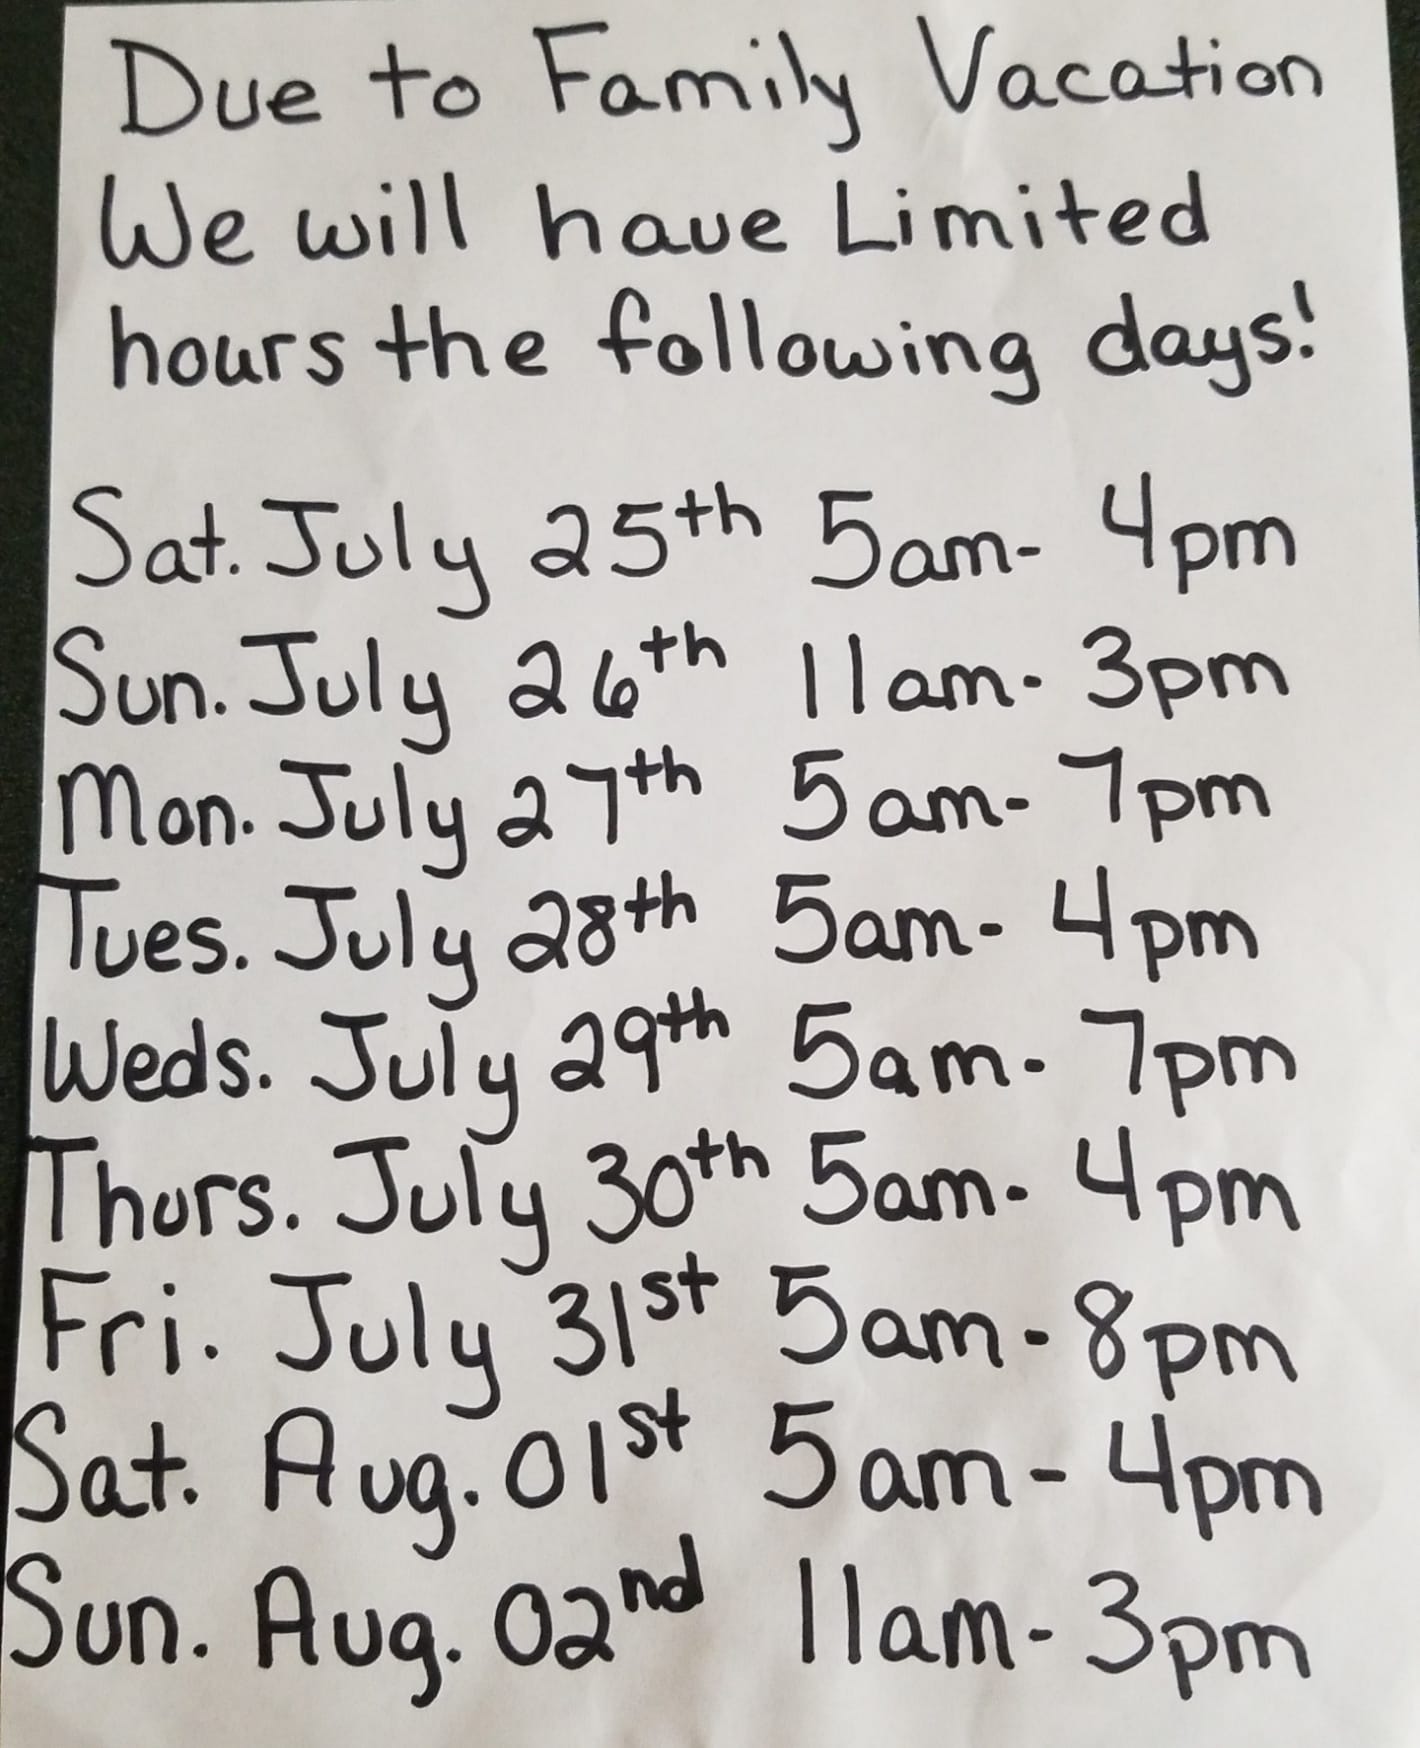 Due to Family Vacation
We will have Limited
hours the following days!
Sat. July 25th 5am- 4pm
Sun. July 26th 11am- 3pm
Mon. July 27th 5am- 7pm
Tues. July 28th 5am- 4pm
Weds. July 29th 5am- 7pm
Thurs. July 30th 5am- 4pm
Fri. July 31st 5am- 8pm
Sat. Aug. 01st 5am- 4pm
Sun. Aug. 02nd 11am- 3pm